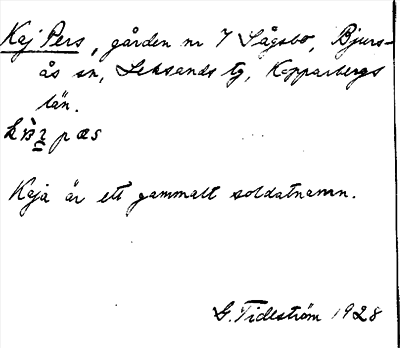 Kaj Pers, gården nr 7 Sågsbo, Bjurs-
ås sn, Leksands tg, Kopparbergs
län.
pæs
Kaja är ett gammalt soldatnamn.
G. Tideström 1928